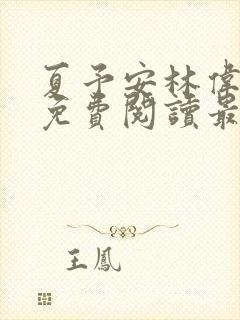 夏予安林偉
免費閱讀最
王鳳